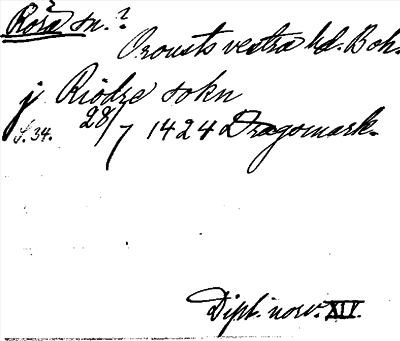 Röra sn.?
Orousts vestra hd. Boh.
j Riödre sokn
S. 34. 28/7 1424 Dragsmark.
Dipl. norv. XIV.